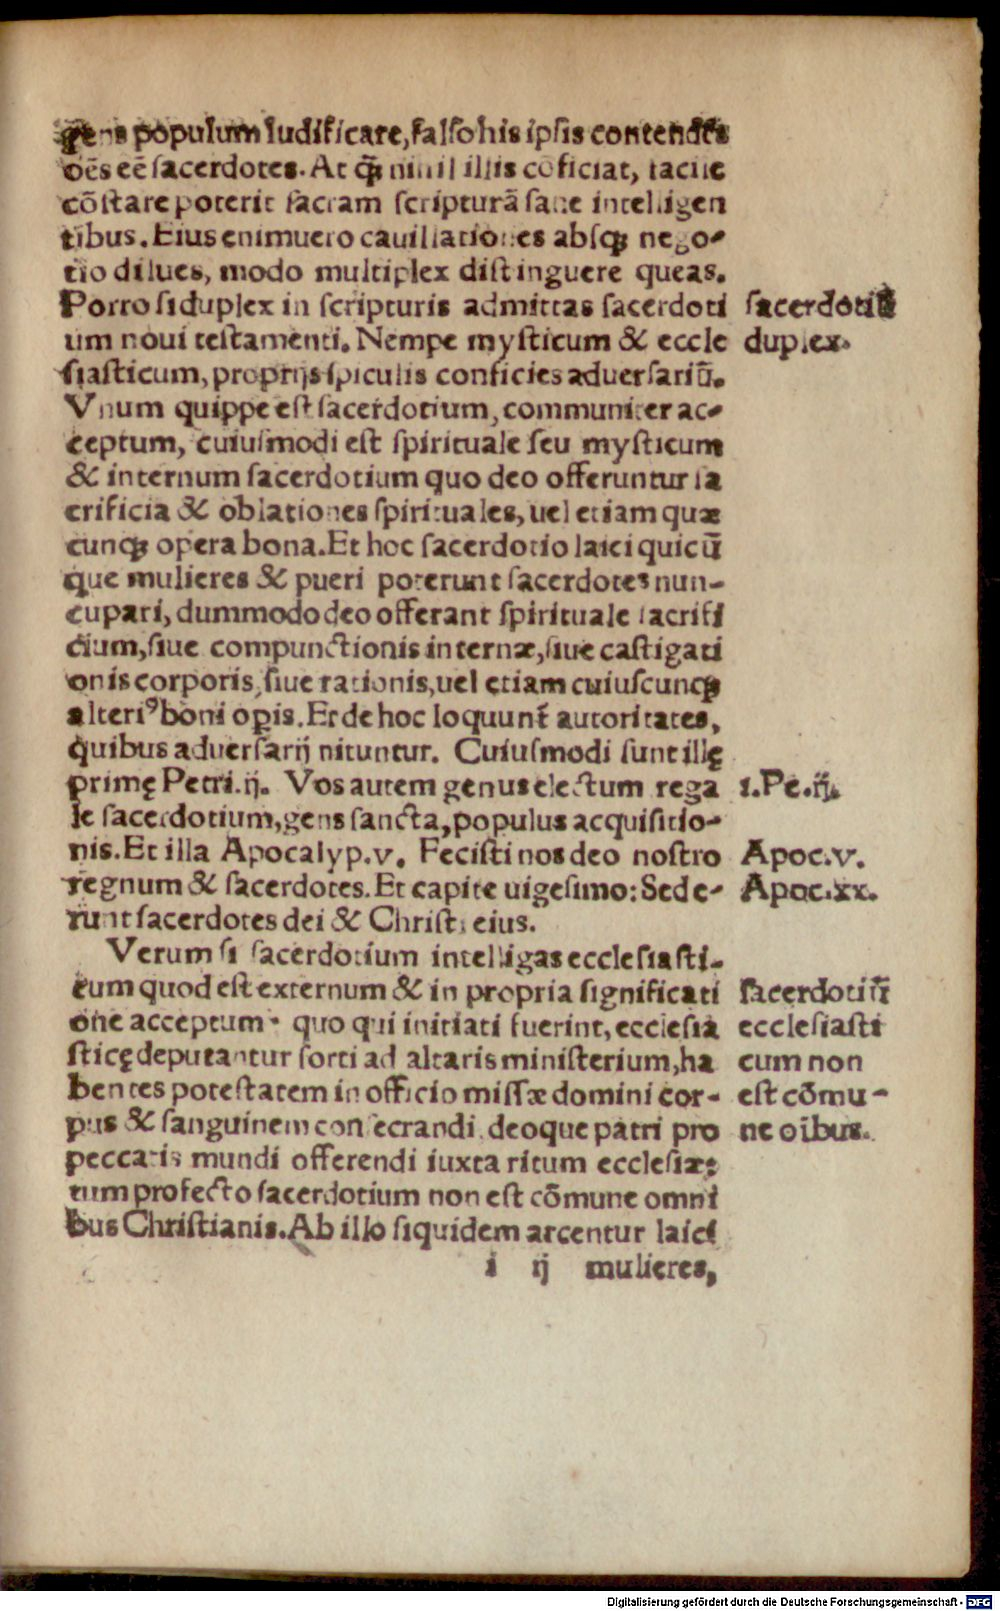 gens populum ludificare, falso his ipsis contendẽs
oẽs eẽ sacerdotes. At ꝙ̃ nihil illis cõficiat, facile
cõstare poterit sacram scripturã sane intelligen
tibus. Eius enimuero cauillationes absqꝫ nego-
tio dilues, modo multiplex distinguere queas.
Porro si duplex in scripturis admittas sacerdoti
um noui testamenti. Nempe mysticum & eccle
siasticum, proprijs spiculis conficies aduersariũ.
Vnum quippe est sacerdotium, communiter ac-
ceptum, cuiusmodi est spirituale seu mysticum
& internum sacerdotium quo deo offeruntur sa
crificia & oblationes spirituales, uel etiam quæ
cunqꝫ opera bona. Et hoc sacerdotio laici quicũ
que mulieres & pueri poterunt sacerdotes nun-
cupari, dummodo deo offerant spirituale sacrifi
cium, siue compunctionis internæ, siue castigati
onis corporis, siue rationis, uel etiam cuiuscunqꝫ
alteriꝰ boni oꝑis. Et de hoc loquunt̃ autoritates,
quibus aduersarij nituntur. Cuiusmodi sunt illę
primę Petri.ij. Vos autem genus electum rega
le sacerdotium, gens sancta, populus acquisitio-
nis. Et illa Apocalyp.v. Fecisti nos deo nostro
regnum & sacerdotes. Et capite uigesimo: Sede-
runt sacerdotes dei & Christi eius.
Verum si sacerdotium intelligas ecclesiasti-
cum quod est externum & in propria significati
one acceptum. quo qui initiati fuerint, ecclesia
sticę deputantur sorti ad altaris ministerium, ha
bentes potestatem in officio missæ domini cor-
pus & sanguinem consecrandi, deoque patri pro
peccatis mundi offerendi iuxta ritum ecclesiæ:
tum profecto sacerdotium non est cõmune omni
bus Christianis. Ab illo siquidem arcentur laici
i ij mulieres,
sacerdotiũ
duplex.
1. Pe.ij.
Apoc.v.
Apoc.xx.
sacerdotiũ
ecclesiasti
cum non
est cõmu-
ne oibus.
Digitalisierung gefördert durch die Deutsche Forschungsgemeinschaft - DFG